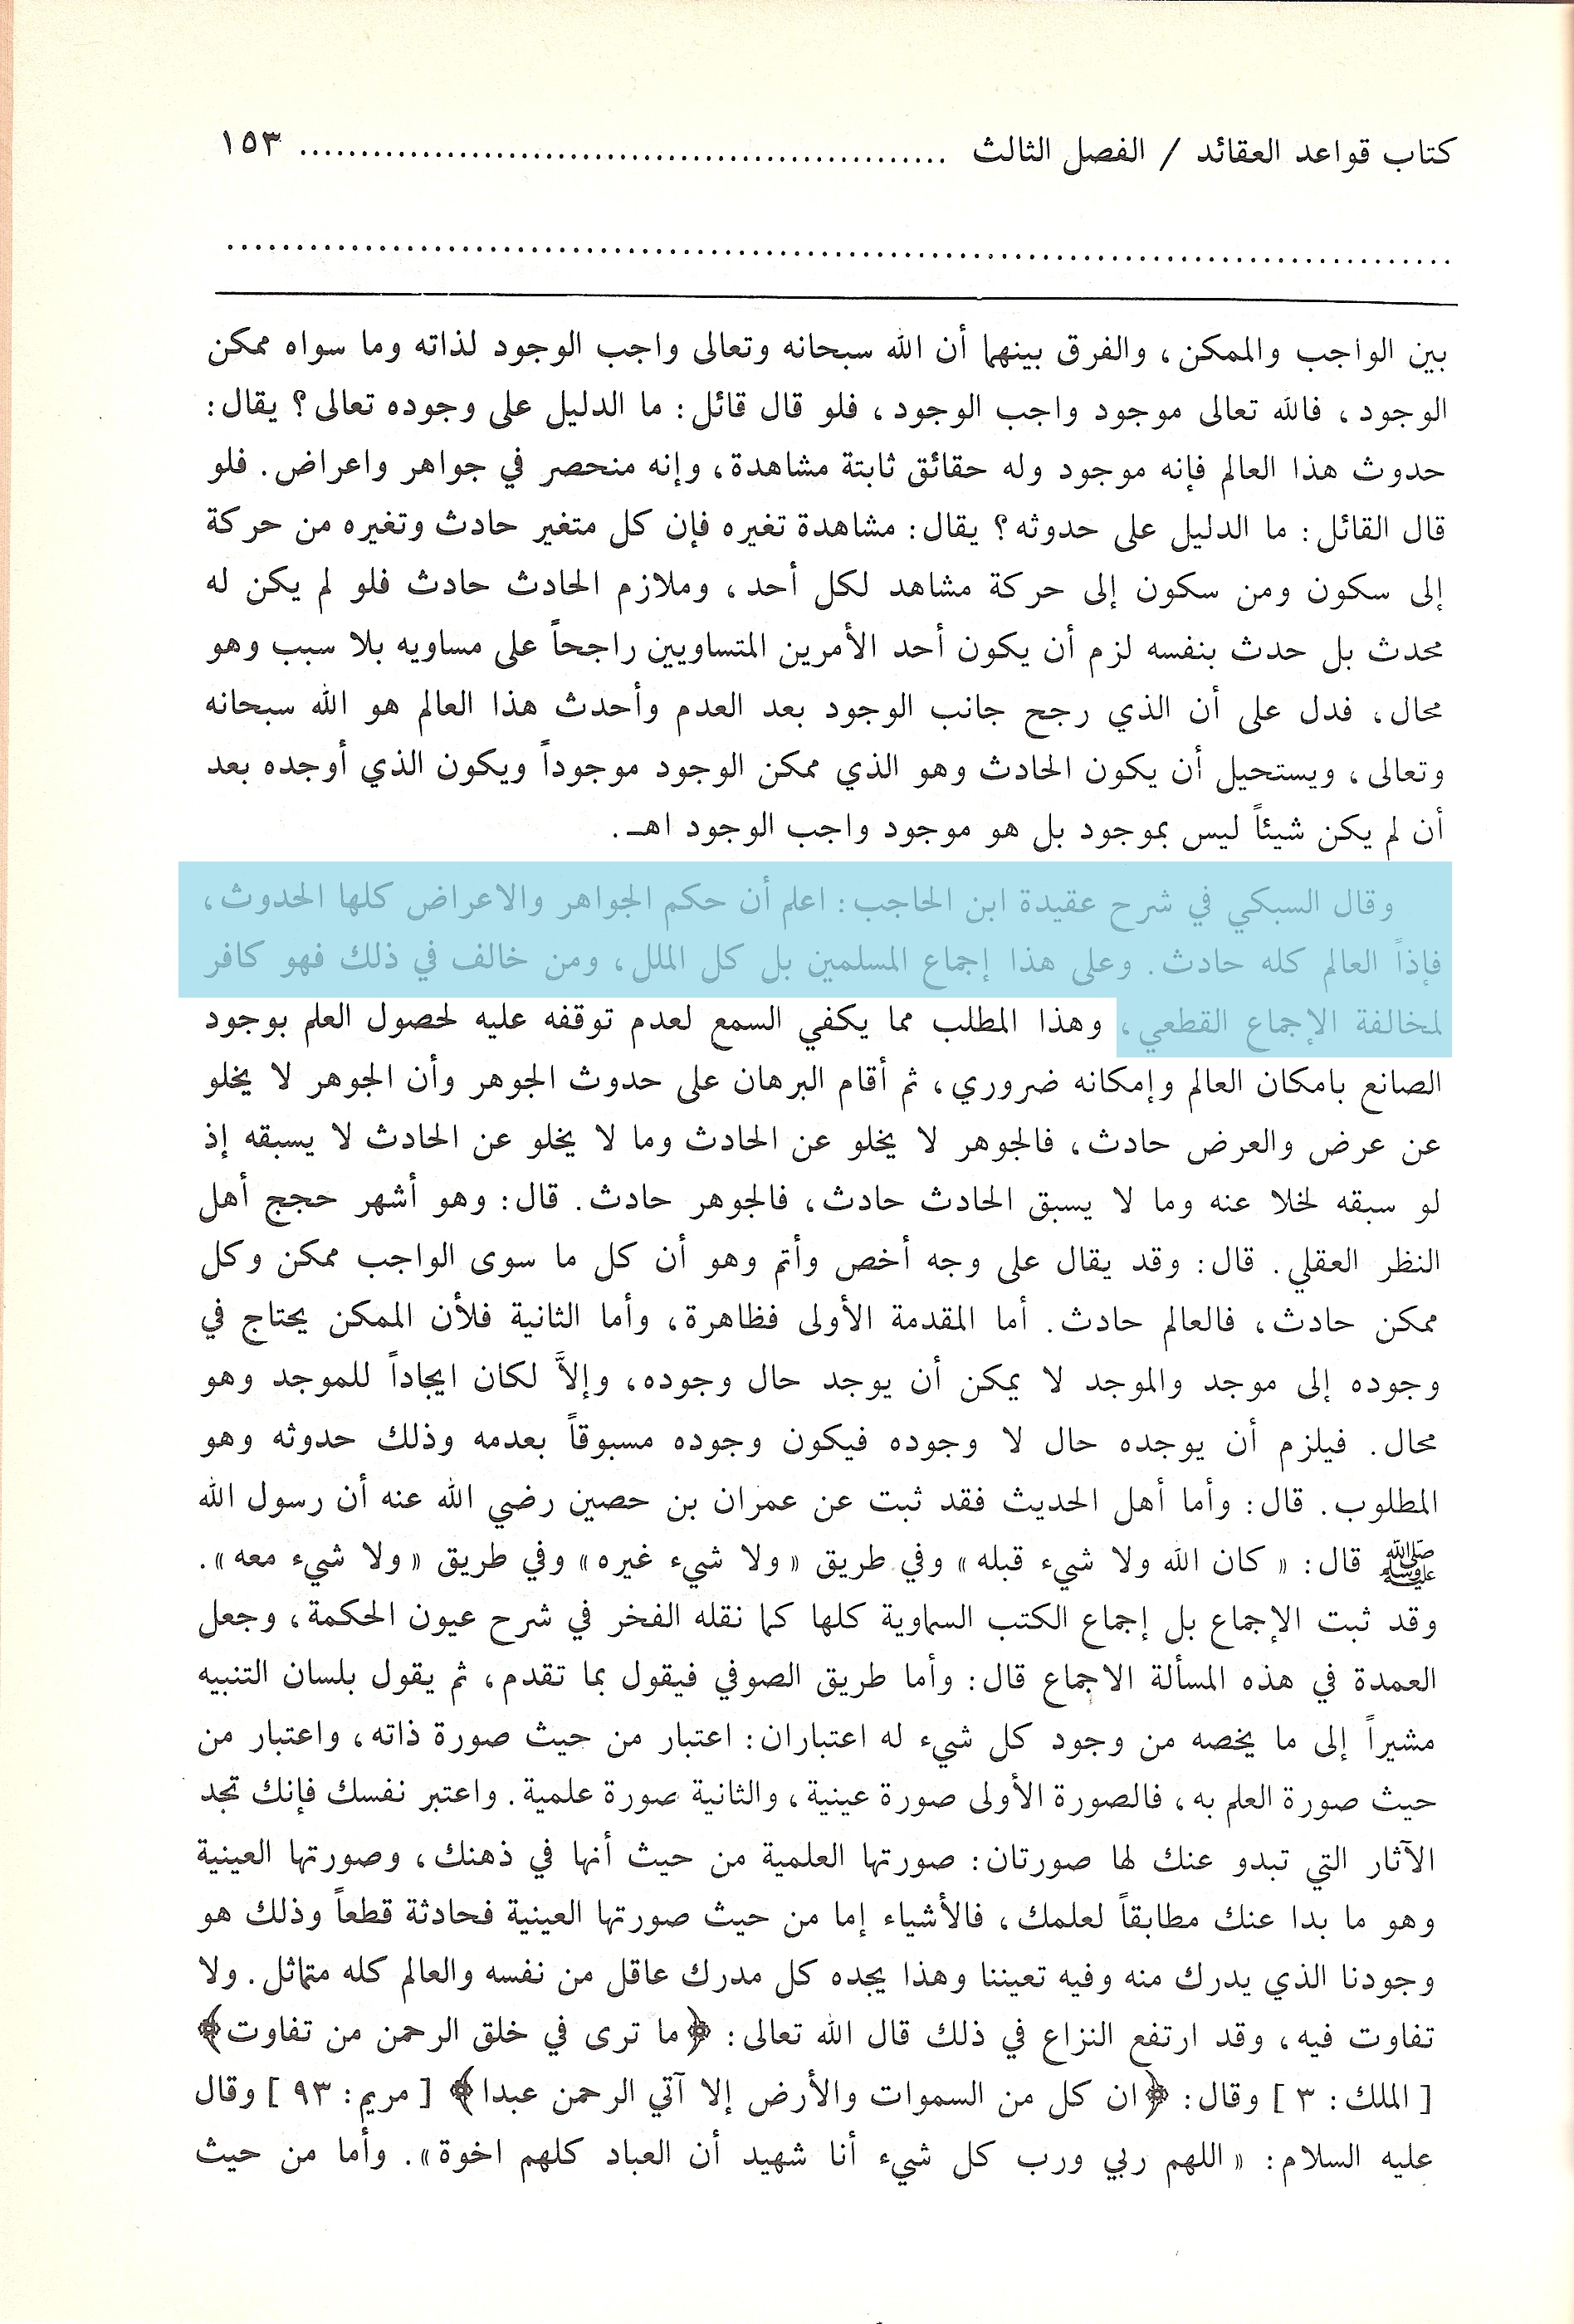 كتاب قواعد العقائد / الفصل الثالث ...................................................... ١٥٣
..........................................................................................
بين الواجب والممكن، والفرق بينهما أن الله سبحانه وتعالى واجب الوجود لذاته وما سواه ممكن
الوجود، فالله تعالى موجود واجب الوجود، فلو قال قائل: ما الدليل على وجوده تعالى؟ يقال:
حدوث هذا العالم فإنه موجود وله حقائق ثابتة مشاهدة، وإنه منحصر في جواهر واعراض. فلو
قال القائل: ما الدليل على حدوثه؟ يقال: مشاهدة تغيره فإن كل متغير حادث وتغيره من حركة
إلى سكون ومن سكون إلى حركة مشاهد لكل أحد، وملازم الحادث حادث فلو لم يكن له
محدث بل حدث بنفسه لزم أن يكون أحد الأمرين المتساويين راجحاً على مساويه بلا سبب وهو
محال، فدل على أن الذي رجح جانب الوجود بعد العدم وأحدث هذا العالم هو الله سبحانه
وتعالى، ويستحيل أن يكون الحادث وهو الذي ممكن الوجود موجوداً ويكون الذي أوجده بعد
أن لم يكن شيئاً ليس بموجود بل هو موجود واجب الوجود اهـ.
وقال السبكي في شرح عقيدة ابن الحاجب: اعلم أن حكم الجواهر والاعراض كلها الحدوث،
فإذاً العالم كله حادث. وعلى هذا إجماع المسلمين بل كل الملل، ومن خالف في ذلك فهو كافر
لمخالفة الإجماع القطعي، وهذا المطلب مما يكفي السمع لعدم توقفه عليه لحصول العلم بوجود
الصانع بامكان العالم وإمكانه ضروري، ثم أقام البرهان على حدوث الجوهر وأن الجوهر لا يخلو
عن عرض والعرض حادث، فالجوهر لا يخلو عن الحادث وما لا يخلو عن الحادث لا يسبقه إذ
لو سبقه لخلا عنه وما لا يسبق الحادث حادث، فالجوهر حادث. قال: وهو أشهر حجج أهل
النظر العقلي. قال: وقد يقال على وجه أخص وأتم وهو أن كل ما سوى الواجب ممكن وكل
ممكن حادث، فالعالم حادث. أما المقدمة الأولى فظاهرة، وأما الثانية فلأن الممكن يحتاج في
وجوده إلى موجد والموجد لا يمكن أن يوجد حال وجوده، وإلاَّ لكان ايجاداً للموجد وهو
محال. فيلزم أن يوجده حال لا وجوده فيكون وجوده مسبوقاً بعدمه وذلك حدوثه وهو
المطلوب. قال: وأما أهل الحديث فقد ثبت عن عمران بن حصين رضي الله عنه أن رسول الله
ﷺ قال: «كان الله ولا شيء قبله» وفي طريق «ولا شيء غيره» وفي طريق «ولا شيء معه».
وقد ثبت الإجماع بل إجماع الكتب السماوية كلها كما نقله الفخر في شرح عيون الحكمة، وجعل
العمدة في هذه المسألة الاجماع قال: وأما طريق الصوفي فيقول بما تقدم، ثم يقول بلسان التنبيه
مشيراً إلى ما يخصه من وجود كل شيء له اعتباران: اعتبار من حيث صورة ذاته، واعتبار من
حيث صورة العلم به، فالصورة الأولى صورة عينية، والثانية صورة علمية. واعتبر نفسك فإنك تجد
الآثار التي تبدو عنك لها صورتان: صورتها العلمية من حيث أنها في ذهنك، وصورتها العينية
وهو ما بدا عنك مطابقاً لعلمك، فالأشياء إما من حيث صورتها العينية فحادثة قطعاً وذلك هو
وجودنا الذي يدرك منه وفيه تعيننا وهذا يجده كل مدرك عاقل من نفسه والعالم كله متماثل. ولا
تفاوت فيه، وقد ارتفع النزاع في ذلك قال الله تعالى: ﴿ما ترى في خلق الرحمن من تفاوت﴾
[الملك: ٣] وقال: ﴿ان كل من السموات والأرض إلا آتي الرحمن عبدا﴾ [مريم: ٩٣] وقال
عليه السلام: «اللهم ربي ورب كل شيء أنا شهيد أن العباد كلهم اخوة». وأما من حيث